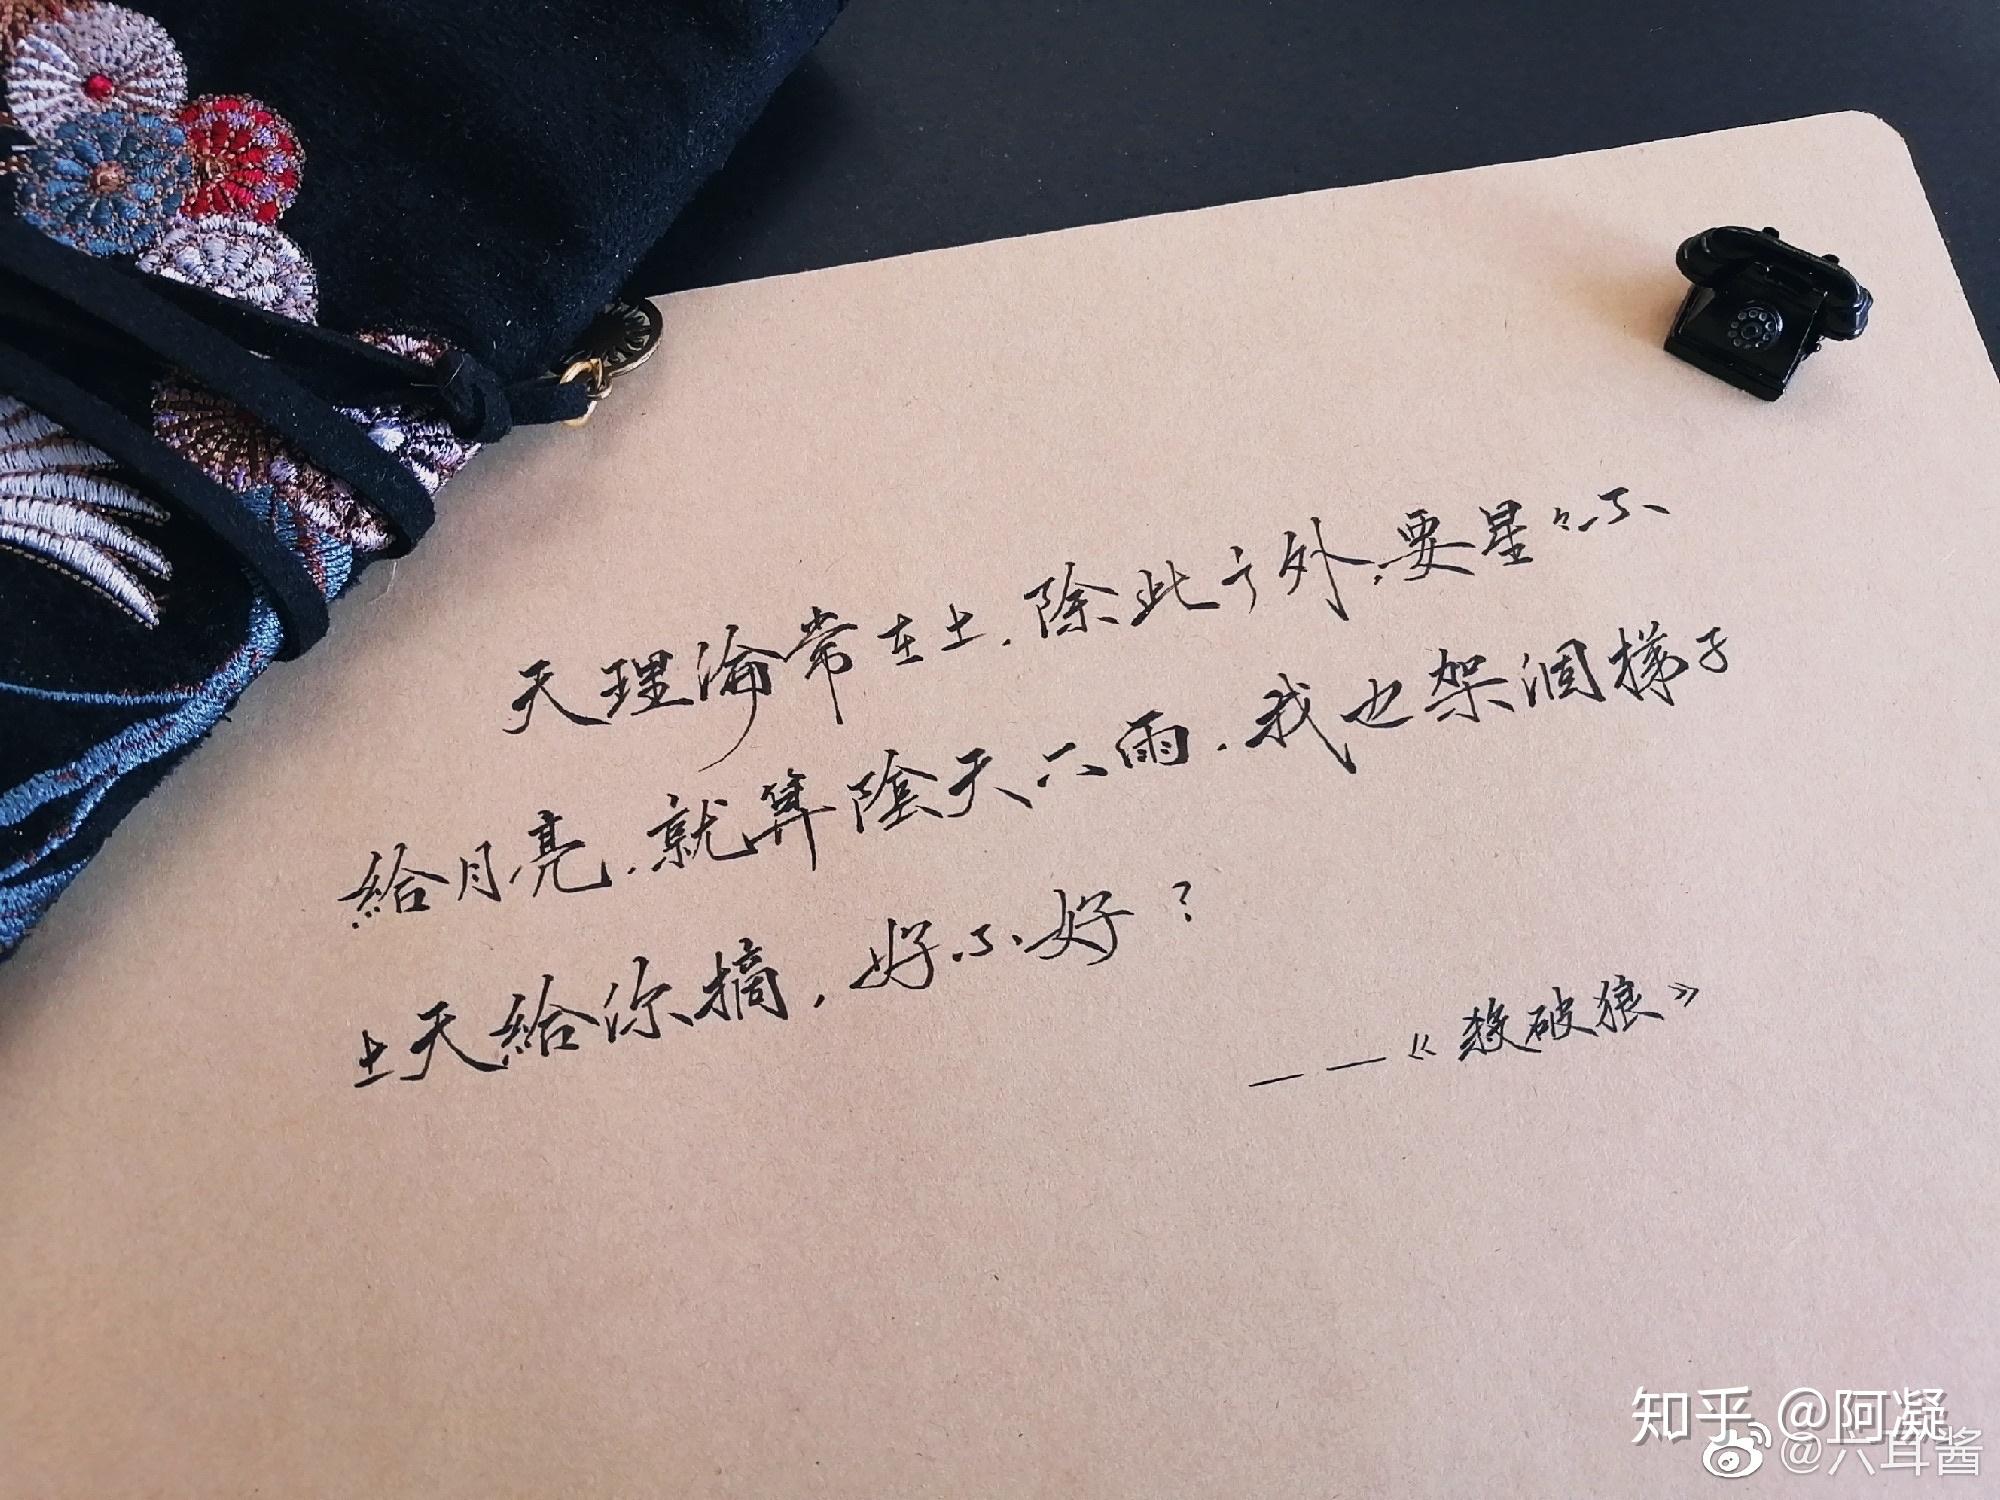 天理淪常在上，除此之外，要星星不
給月亮，就算陰天下雨，我也架個梯子
上天給你摘，好不好？
——《殺破狼》
知乎 @阿凝
@六耳酱